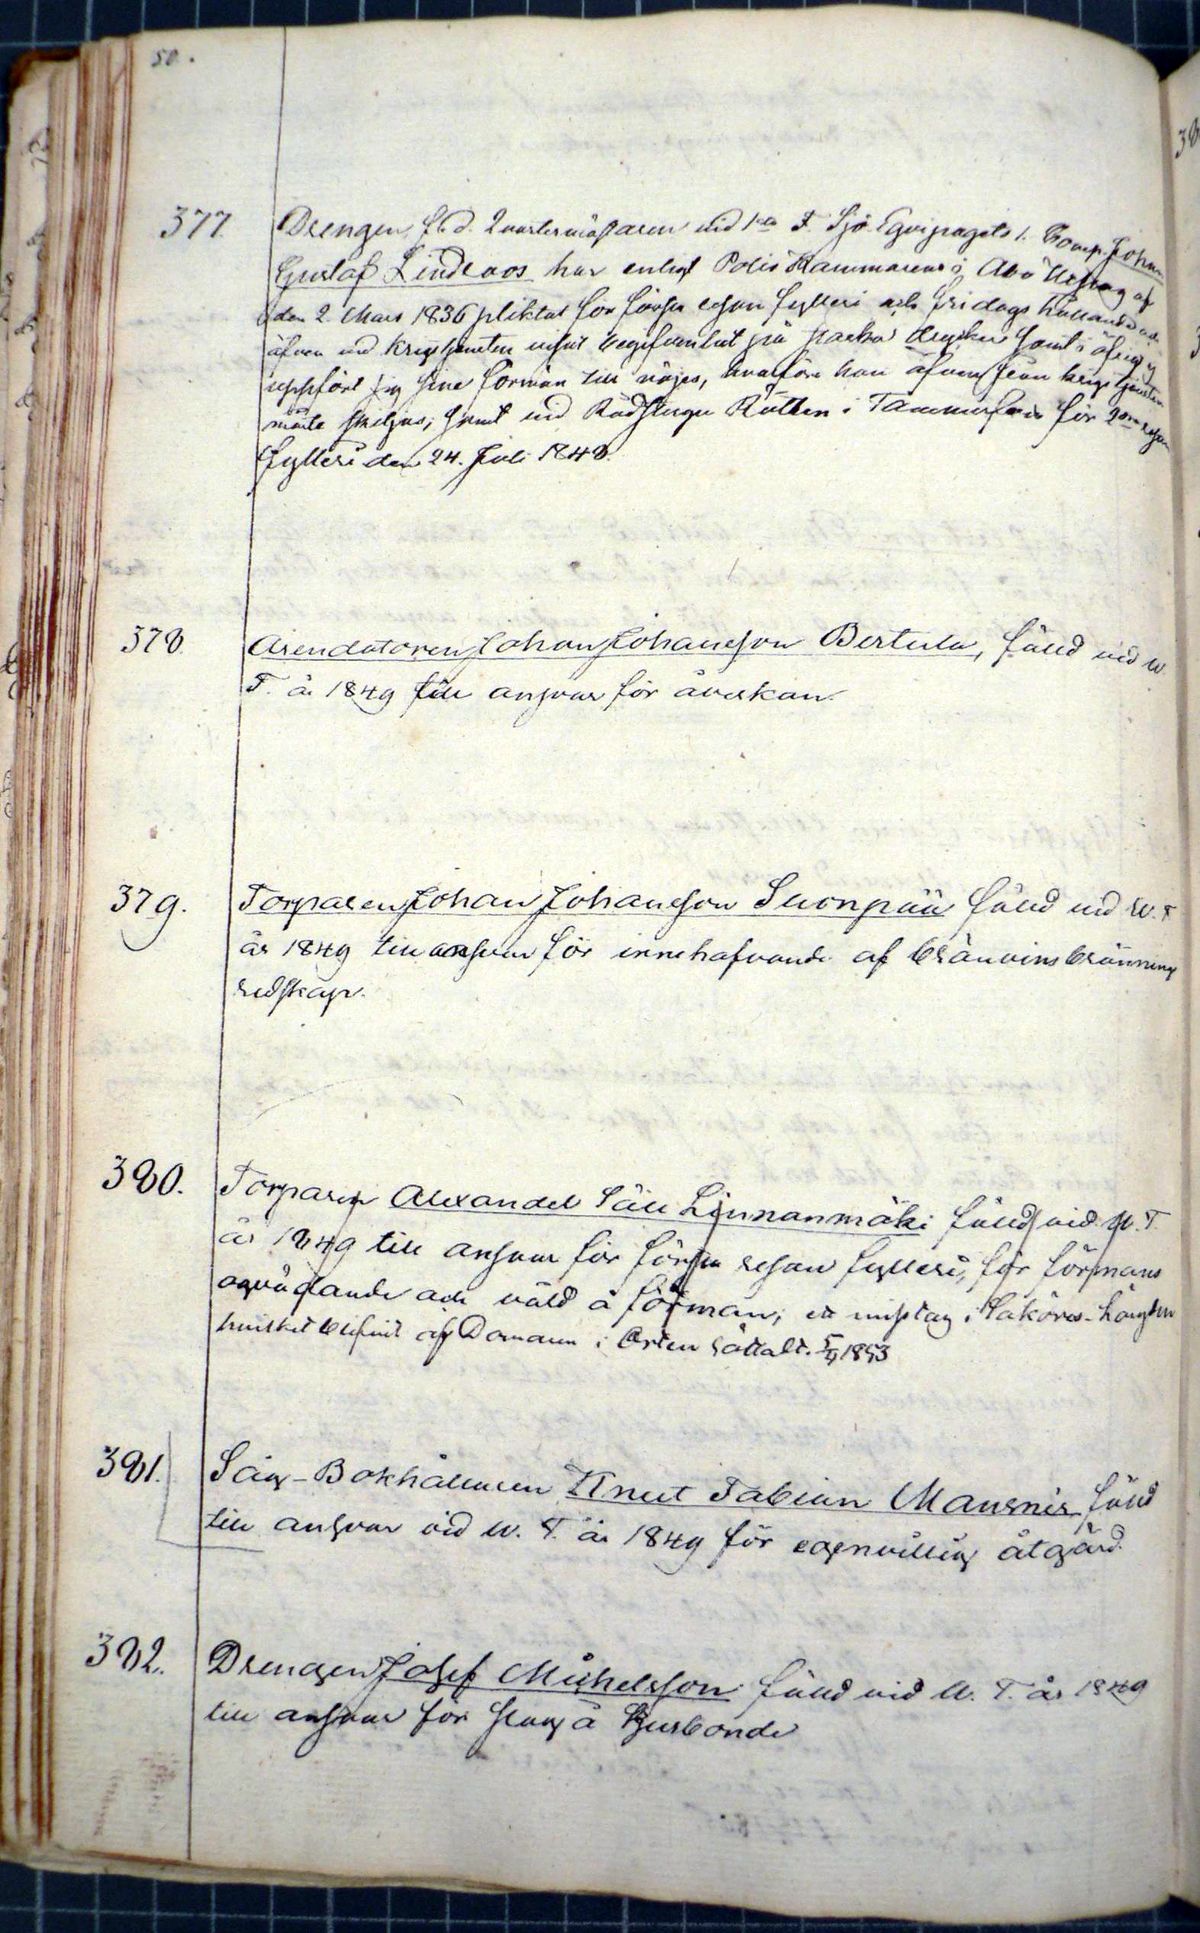 50.
377. Drengen, f. d. Quartermästaren vid 1sta F. Sjö Equipagets 1. Comp. Johan
Gustaf Lindroos har enligt Polis Kammarens i Åbo Utslag af
den 2. Mars 1836 pliktat för första resan fylleri och
äfven vid krigstjensten visat begifvenhet på starka drycker samt i öfrigt ej
uppfört sig sine förmän till nöjes, hvarföre han äfven från krigstjensten
måste skiljas; samt vid Rådstugu Rätten i Tammerfors för 2dra resan
fylleri den 24. Juli 1848.
378. Arendatoren Johan Johansson Bertula, fäld vid W.
T. år 1849 till ansvar för åverkan.
379. Torparen Johan Johansson Suonpää fäld vid W. T.
år 1849 till ansvar för innehafvande af bränvinsbrännings
redskap.
380. Torparen Alexander Säll Linnanmäki fäld vid W. T.
år 1849 till ansvar för första resan fylleri, för förmans
oqvädande och våld å förman; ett misstag i Saköres-Längden
hvilket blifvit af Domaren i Orten rättadt. 1853
381. Såg-Bokhållaren Knut Fabian Mansner fäld
till ansvar vid W. T. år 1849 för egenvillig åtgärd.
382. Drengen Josef Michelsson fäld vid W. T. år 1849
till ansvar för slag å Husbonde